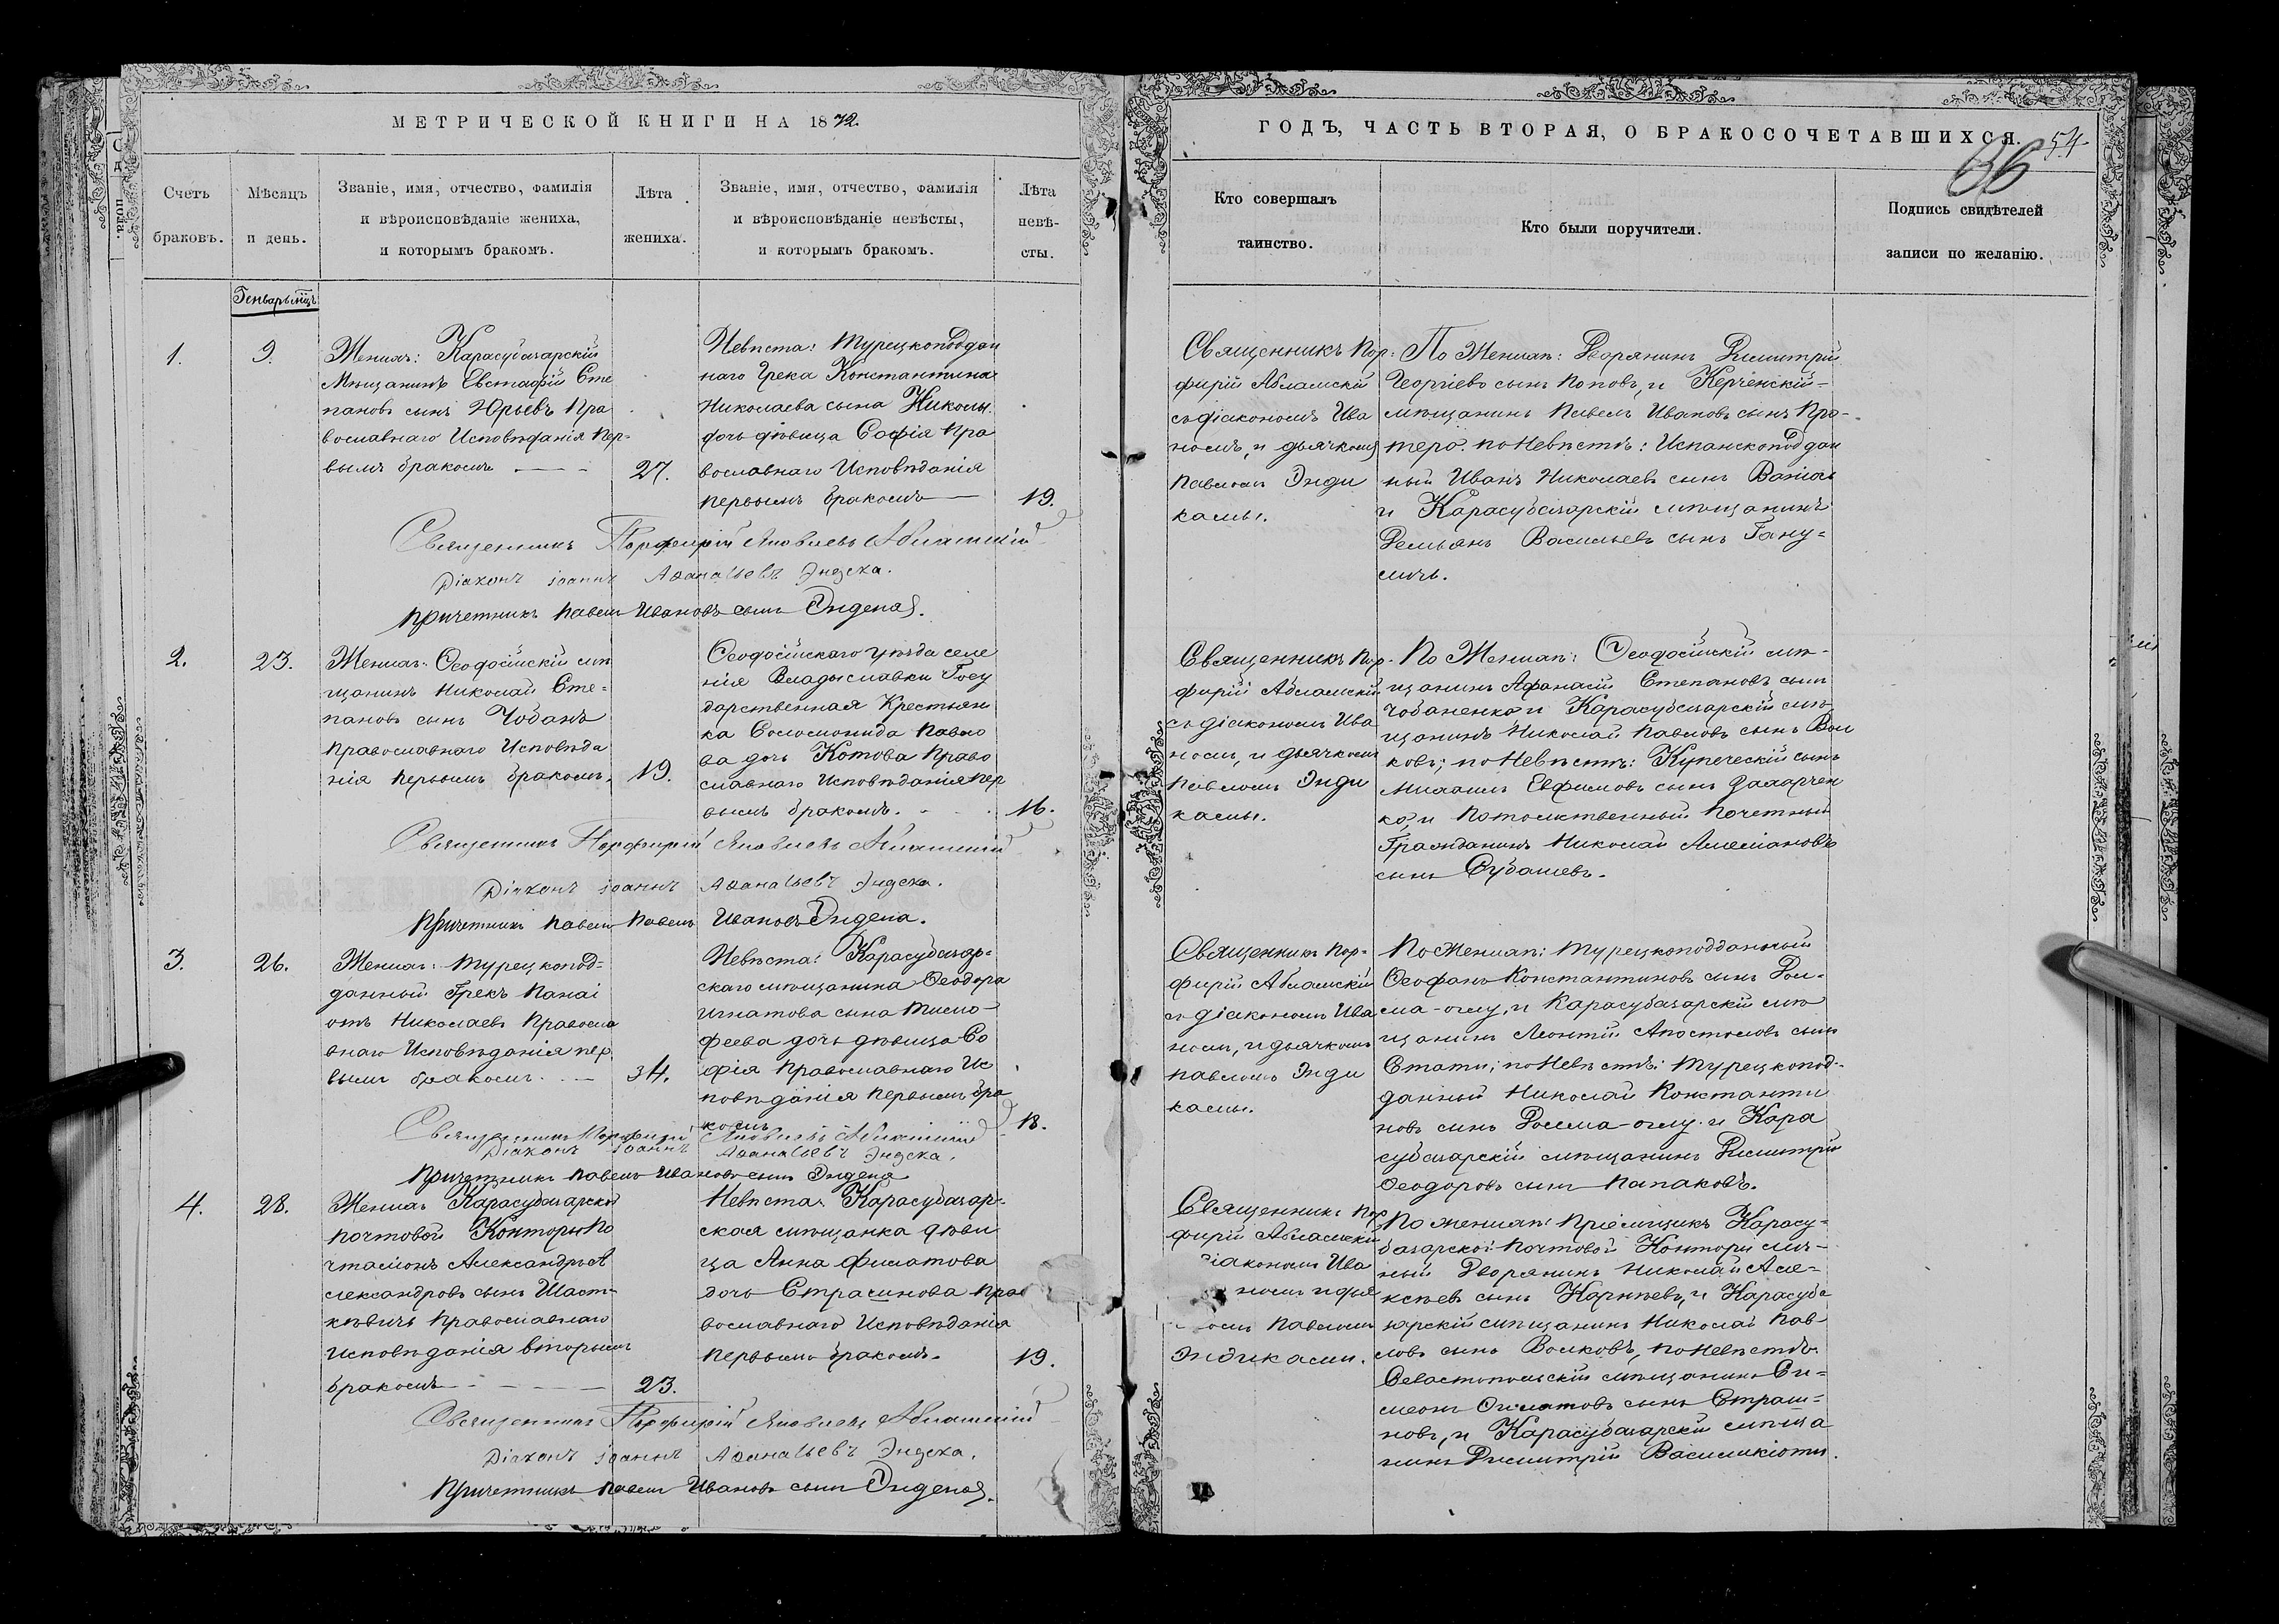 МЕТРИЧЕСКОЙ КНИГИ НА 1872.
Счетъ
браковъ.
Мѣсяцъ
и день.
Званіе, имя, отчество, фамилія
и вѣроисповѣданіе жениха,
и которымъ бракомъ.
Лѣта
жениха.
Званіе, имя, отчество, фамилія
и вѣроисповѣданіе невѣсты,
и которымъ бракомъ.
Лѣта
невѣ-
сты.
Генварь мцъ
1.
9.
Женихъ: Карасубазарскій
Мѣщанинъ Евстафій Сте
пановъ сынъ Юрьевъ Пра
вославнаго Исповѣданія пер-
вымъ бракомъ
27.
Невѣста: Турецкоподдан
наго Грека Константина
Николаева сына Николы
дочь дѣвица Софія Пра
вославнаго Исповѣданія
первымъ бракомъ
19.
Священникъ Порфирій Яковлевъ Абламскій
Діаконъ Іоаннъ Аѳанасьевъ Эндека.
Причетникъ Павелъ Ивановъ сынъ Эндека.
2.
23.
Женихъ: Ѳеодосійскій мѣ
щанинъ Николай Сте-
пановъ сынъ Чобанъ
Православнаго Исповѣда
нія первымъ бракомъ.
19.
Ѳеодосійскаго уѣзда селе
нія Владыславки Госу
дарственная Крестьян
ка Соломонида Павло
ва дочь Котова Право
славнаго Исповѣданія пер
вымъ бракомъ.
16.
Священникъ Порфирій Яковлевъ Абламскій
Діаконъ Іоаннъ Аѳанасьевъ Эндека.
Причетникъ Павелъ Павелъ Ивановъ Эндека.
3.
26.
Женихъ: Турецкопод-
данный Грекъ Панаі
отъ Николаевъ Правосла
внаго Исповѣданія пер
вымъ бракомъ.
34.
Невѣста: Карасубазар-
скаго мѣщанина Ѳеодора
Игнатова сына Тимо-
феева дочь дѣвица Со
фія Православнаго Ис
повѣданія первымъ бра
комъ
18.
Священникъ Порфирій Яковлевъ Абламскій
Діаконъ Іоаннъ Аѳанасьевъ Эндека.
Причетникъ Павелъ Ивановъ сынъ Эндека
4.
28.
Женихъ Карасубазарской
почтовой Конторы По
чталіонъ Александръ А
лександровъ сынъ
Православнаго
Исповѣданія вторымъ
бракомъ
23.
Невѣста: Карасубазар-
ская мѣщанка дѣви
ца Анна Филатова
дочь Страшнова Пра
вославнаго Исповѣданія
первымъ бракомъ.
19.
Священникъ Порфирій Яковлевъ Абламскій
Діаконъ Іоаннъ Аѳанасьевъ Эндека.
Причетникъ Павелъ Ивановъ сынъ Эндека.
ГОДЪ, ЧАСТЬ ВТОРАЯ, О БРАКОСОЧЕТАВШИХСЯ.
54
Кто совершалъ
таинство.
Кто были поручители.
Подпись свидѣтелей
записи по желанію.
Священникъ Пор-
фирій Абламскій
съ діакономъ Ива
номъ, и дьячкомъ
Павломъ Энди
камы.
По Женихѣ: Дворянинъ Димитрій
Георгіевъ сынъ Поповъ, и Керченскій
мѣщанинъ Павелъ Ивановъ сынъ Про-
теро. по Невѣстѣ: Испанскоподдан
ный Иванъ Николаевъ сынъ
и Карасубазарскій мѣщанинъ
Демьянъ Васильевъ сынъ

Священникъ Пор-
фирій Абламскій
съ діакономъ Ива
номъ, и дьячкомъ
Павломъ Энди
камы.
По Женихѣ: Ѳеодосійскій мѣ-
щанинъ Афанасій Степановъ сынъ
Чобаненко и Карасубазарскій мѣ
щанинъ Николай Павловъ сынъ Вол
ковъ; по Невѣстѣ: Купеческій сынъ
Михаилъ Евфимовъ сынъ
и Потомственный Почетный
Гражданинъ Николай
сынъ Субашевъ.
Священникъ Пор-
фирій Абламскій
съ діакономъ Ива
номъ, и дьячкомъ
Павломъ Энди
камы.
По Женихѣ: Турецкоподданный
Ѳеофанъ Константиновъ сынъ
и Карасубазарскій мѣ
щанинъ Леонтій Апостоловъ сынъ
Стати; по Невѣстѣ: Турецкопод-
данный Николай Константи
новъ сынъ и Кара
субазарскій мѣщанинъ Димитрій
Ѳеодоровъ сынъ Папаковъ.
Священникъ Пор
фирій Абламскій
діакономъ Ива
номъ и дья
Павломъ
Эндиками.
По женихѣ: Пріемщикъ Карасу-
базарской Почтовой Конторы лич-
ный Дворянинъ Николай Але-
ксѣевъ сынъ Карнѣевъ, и Карасуба
зарскій мѣщанинъ Николай Пав-
ловъ сынъ Волковъ, по Невѣстѣ:
Севастопольскій мѣщанинъ Си-
меонъ Филатовъ сынъ Страш-
новъ, и Карасубазарскій мѣща
нинъ Димитрій Василикіоти.